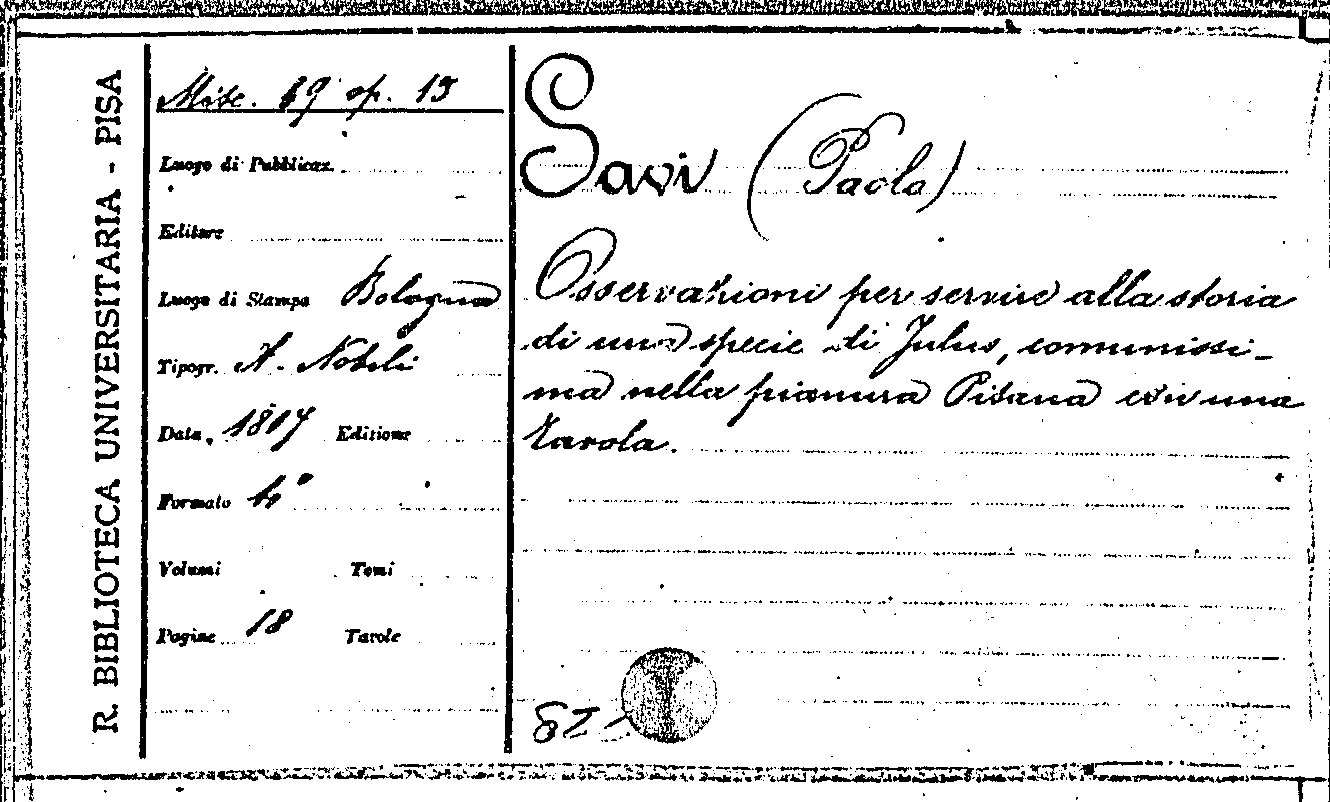 R. BIBLIOTECA UNIVERSITARIA - PISA
Misc. 69 op. 13
Luogo di Pubblicaz.
Editore
Luogo di Stampa Bologna
Tipogr. A. Nobili
Data, 1817 Edizione
Formato 4°
Volumi Tomi
Pagine 18 Tavole
Savi (Paolo)
Osservazioni per servire alla storia
di una specie di Julus, comunissi-
ma nella pianura Pisana con una
tavola.